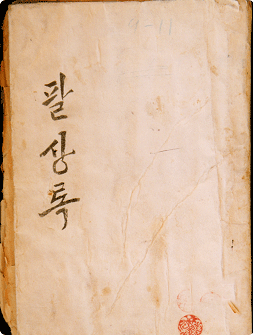 팔상록